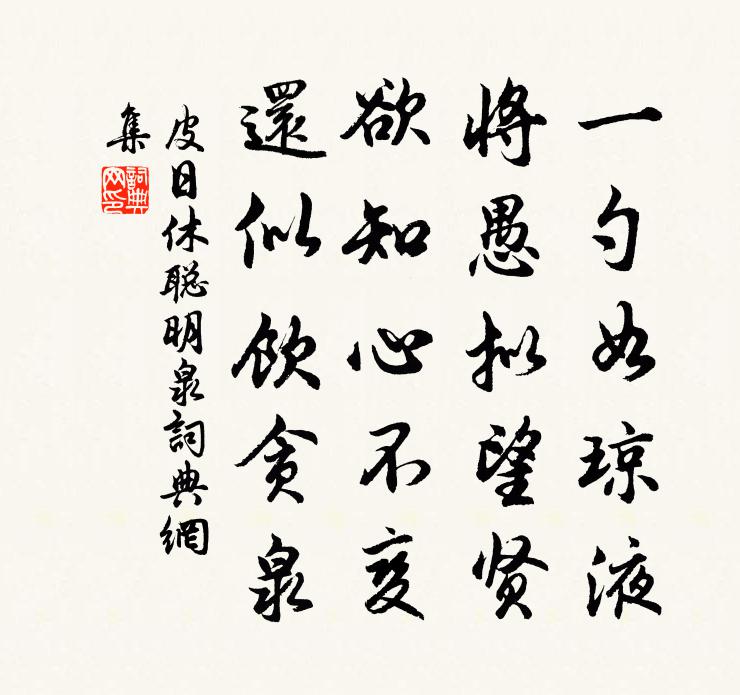 一勺如琼液
將愚拟望贤
欲知心不变
還似飲贪泉
皮日休聪明泉詞典網
集
詞典网印